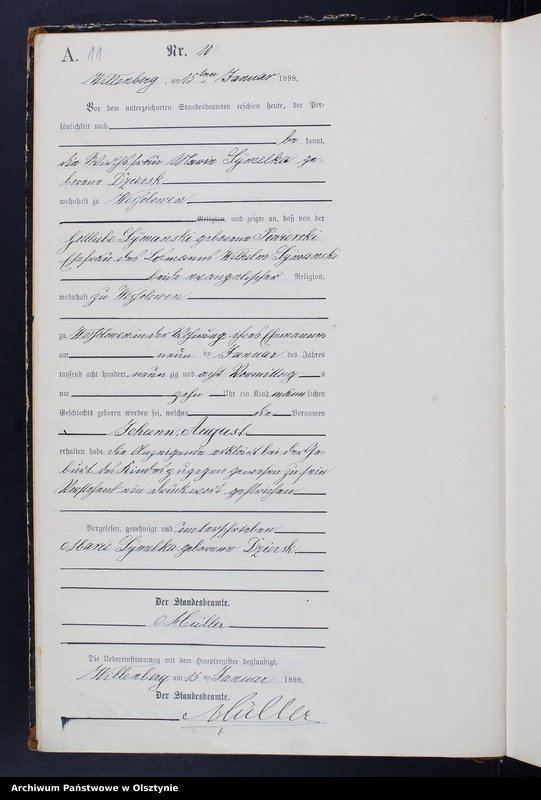 A. 11 Nr. 10
Willenberg, am 15ten Januar 1898.
Vor dem unterzeichneten Standesbeamten erschien heute, der Per-
sönlichkeit nach
be kannt,
die Wirthsfrau Marie Symelka ge-
borene Dziersk
wohnhaft zu Wessolowen
Religion, und zeigte an, daß von der
Gottliebe Symanski geborene
Ehefrau des Losmanns Wilhelm Symanski
beide evangelischer Religion,
wohnhaft zu Wessolowen
zu Wessolowen in der Wohnung ihres Ehemannes
am neun ten Januar des Jahres
tausend acht hundert neun zig und acht Vormittag s
um zehn Uhr ein Kind männ lichen
Geschlechts geboren worden sei, welches die Vornamen
Johann, August
erhalten habe die Anzeigende erklärt bei der Ge-
burt des Kindes zugegen gewesen zu sein
Vorstehend ein Druckwort gestrichen
Vorgelesen, genehmigt und unterschrieben
Marie Symelka geborene Dziersk
Der Standesbeamte.
Müller
Die Uebereinstimmung mit dem Hauptregister beglaubigt.
Willenberg, am 15 ten Januar 1898.
Der Standesbeamte.
Müller
Archiwum Państwowe w Olsztynie